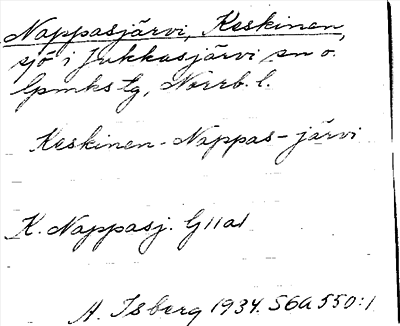 Nappasjärvi, Keskinen,
sjö i Jukkasjärvi sn o.
lpmks tg, Norrb. l.
Keskinen-Nappas-järvi
K. Nappasj. G11a1
A. Isberg 1934. S6A 550:1